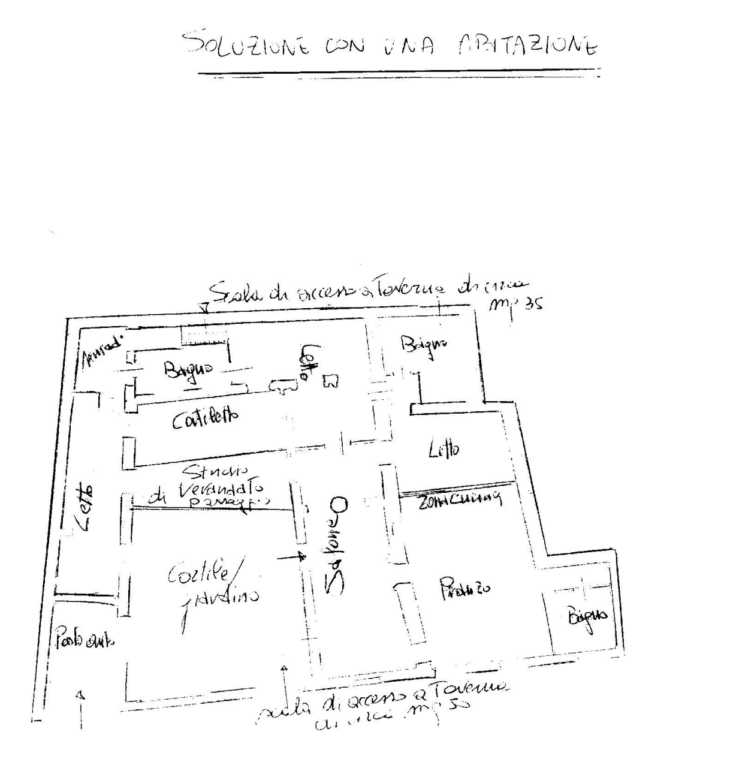 SOLUZIONE CON UNA ABITAZIONE
Scala di accesso a Taverna di circa
mq 35
Armad.
Bagno
Letto
Bagno
Cortiletto
Letto
Studio
di Verandato
passaggio
Zona Cucina
Letto
Salone
Cortile/
giardino
Pranzo
Bagno
Posto auto
scala di accesso a Taverna
di circa mq 50